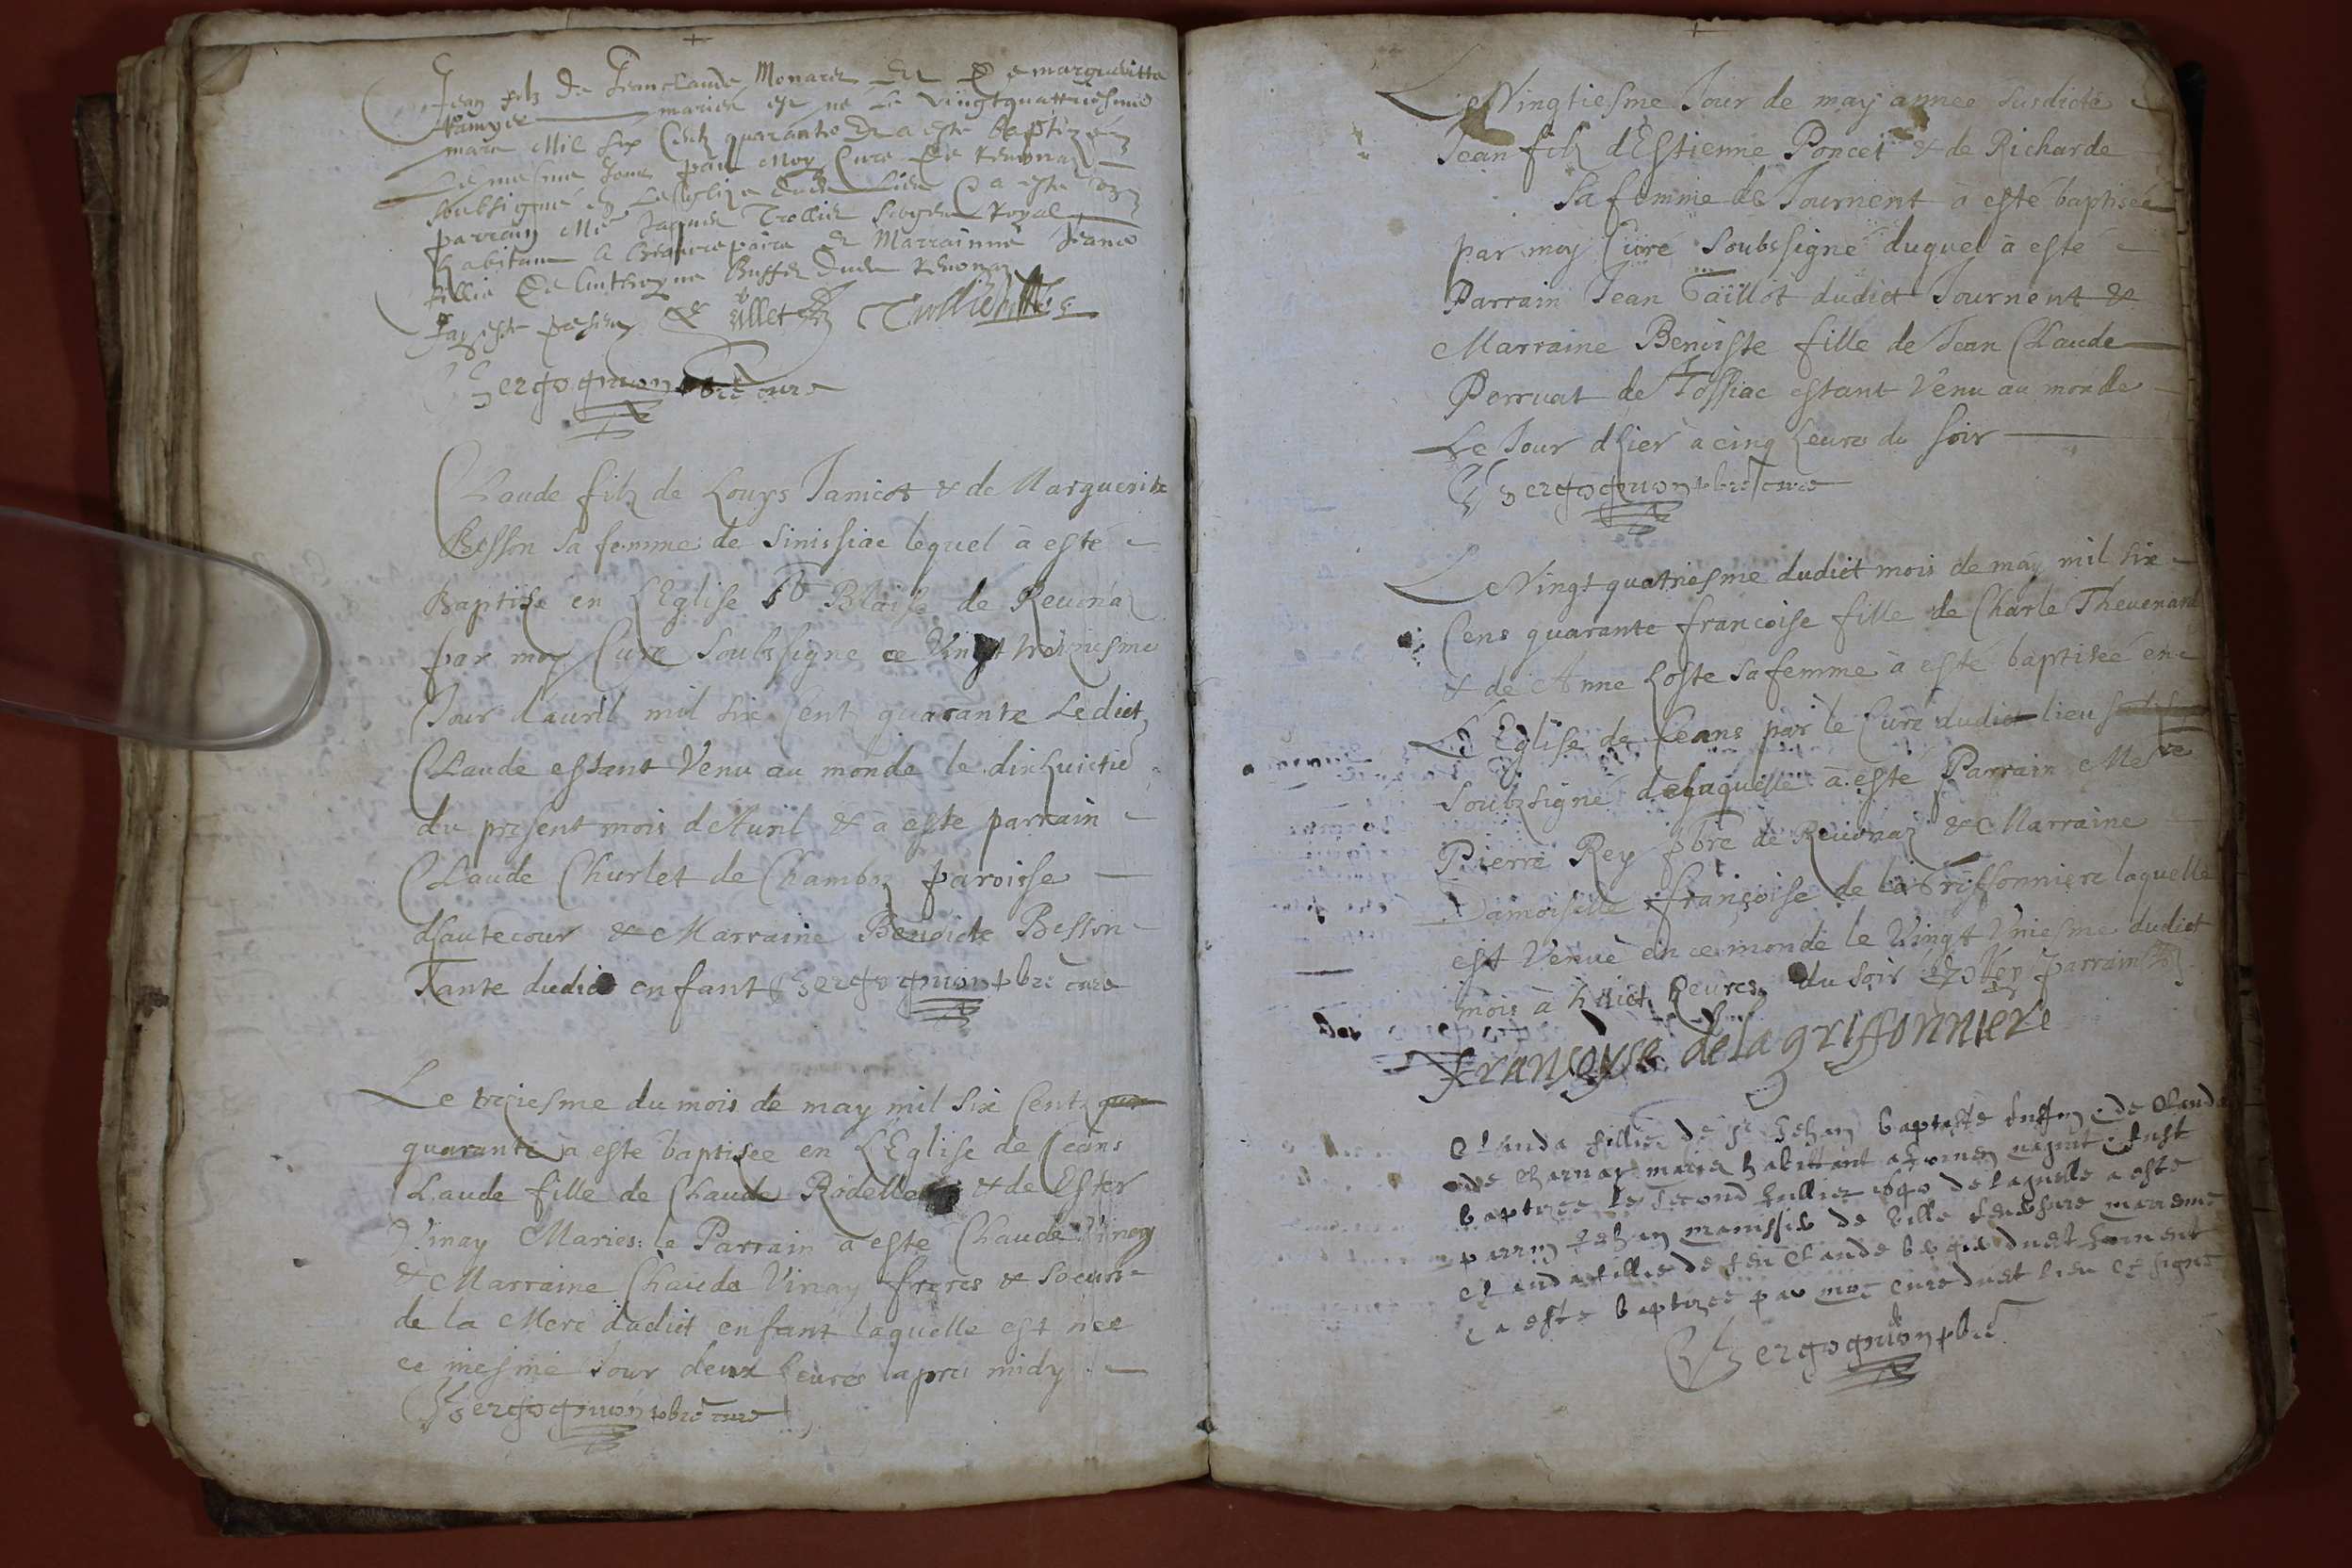 Jean filz de Jean Claude Monard et de margueritte
mariés est né le vingtquattriesme
mars Mil six Centz quarante Et a esté baptizé
Le mesme Jour par Moy Curé de Revonaz
soubsigné en Lesglize dudit Lieu Et a esté
parrain Me Jacques Trollier sergent Royal
habitant a Beaurepaire et Marrainne Jeane
fillie de Anthoyne Buffet dudit Revonaz
present Trollier
Bergognion pbre curé
Claude filz de Louys Janicot & de Marguerite
Besson sa femme de Sinissiac lequel à esté
Baptise en L'Eglise St Blaise de Reuonaz
par moy Curé Soubssigné ce Vingt troiziesme
Jour d'auril mil six cent quarante Ledict
Claude estant Venu au monde le dixhuictie
du present mois d'Auril & à esté parrain
Claude Churlet de Chamboz paroisse
d'hautecour & Marraine Benoicte Besson
Tante dudict enfant Bergognion pbre curé
Le treziesme du mois de may mil six Centz qua
quarante à esté baptisée en L'Eglise de Ceans
Claude fille de Claude Rodelle & de Ester
Vinay Mariés: le Parrain à esté Claude Vinay
& Marraine Claude Vinay freres & soeurs
de la Mere dudict enfant laquelle est née
ce mesme Jour deux heures apres midy
Bergognion pbre curé
Le Vingtiesme Jour de may annee susdicte
Jean filz d'Estienne Poncet & de Richarde
Sa femme de Journent à esté baptisée
par moy Curé Soubssigné duquel à esté
Parrain Jean Taillot dudict Journent &
Marraine Benoiste fille de Jean Claude
Perruat de Tossiac estant Vênu au monde
Le Jour d'hier à cinq heures du soir
Bergognion pbre curé
Le Vingtquatriesme dudict mois de may mil six
Cens quarante francoise fille de Charle Theuenard
& de Anne Loste sa femme à esté baptiseé en
L'Eglise de Ceans par le Curé dudict lieu
Soubzsigné delaquelle à esté Parrain Messre
Pierre Rey pbre de Reuonaz & Marraine
Damoiselle françoise de la Griffonniere laquelle
est Venuë en ce monde le Vingt Vniesme dudict
mois à huict heures du soir P Rey parrain
fransoyse de la griffonniere
Clauda fillie de Sr Jehan baptiste & de Clauda
de Charnay mariez habittant a nayuit & fust
baptizee le second Jullier 1640 de laquelle a esté
parrin Jehan manissier de Ville marreme
Clauda fillie de feu Claude dudt Jornent
& a esté baptizee par moy curé dudt lieu & signé
Bergognion pbre